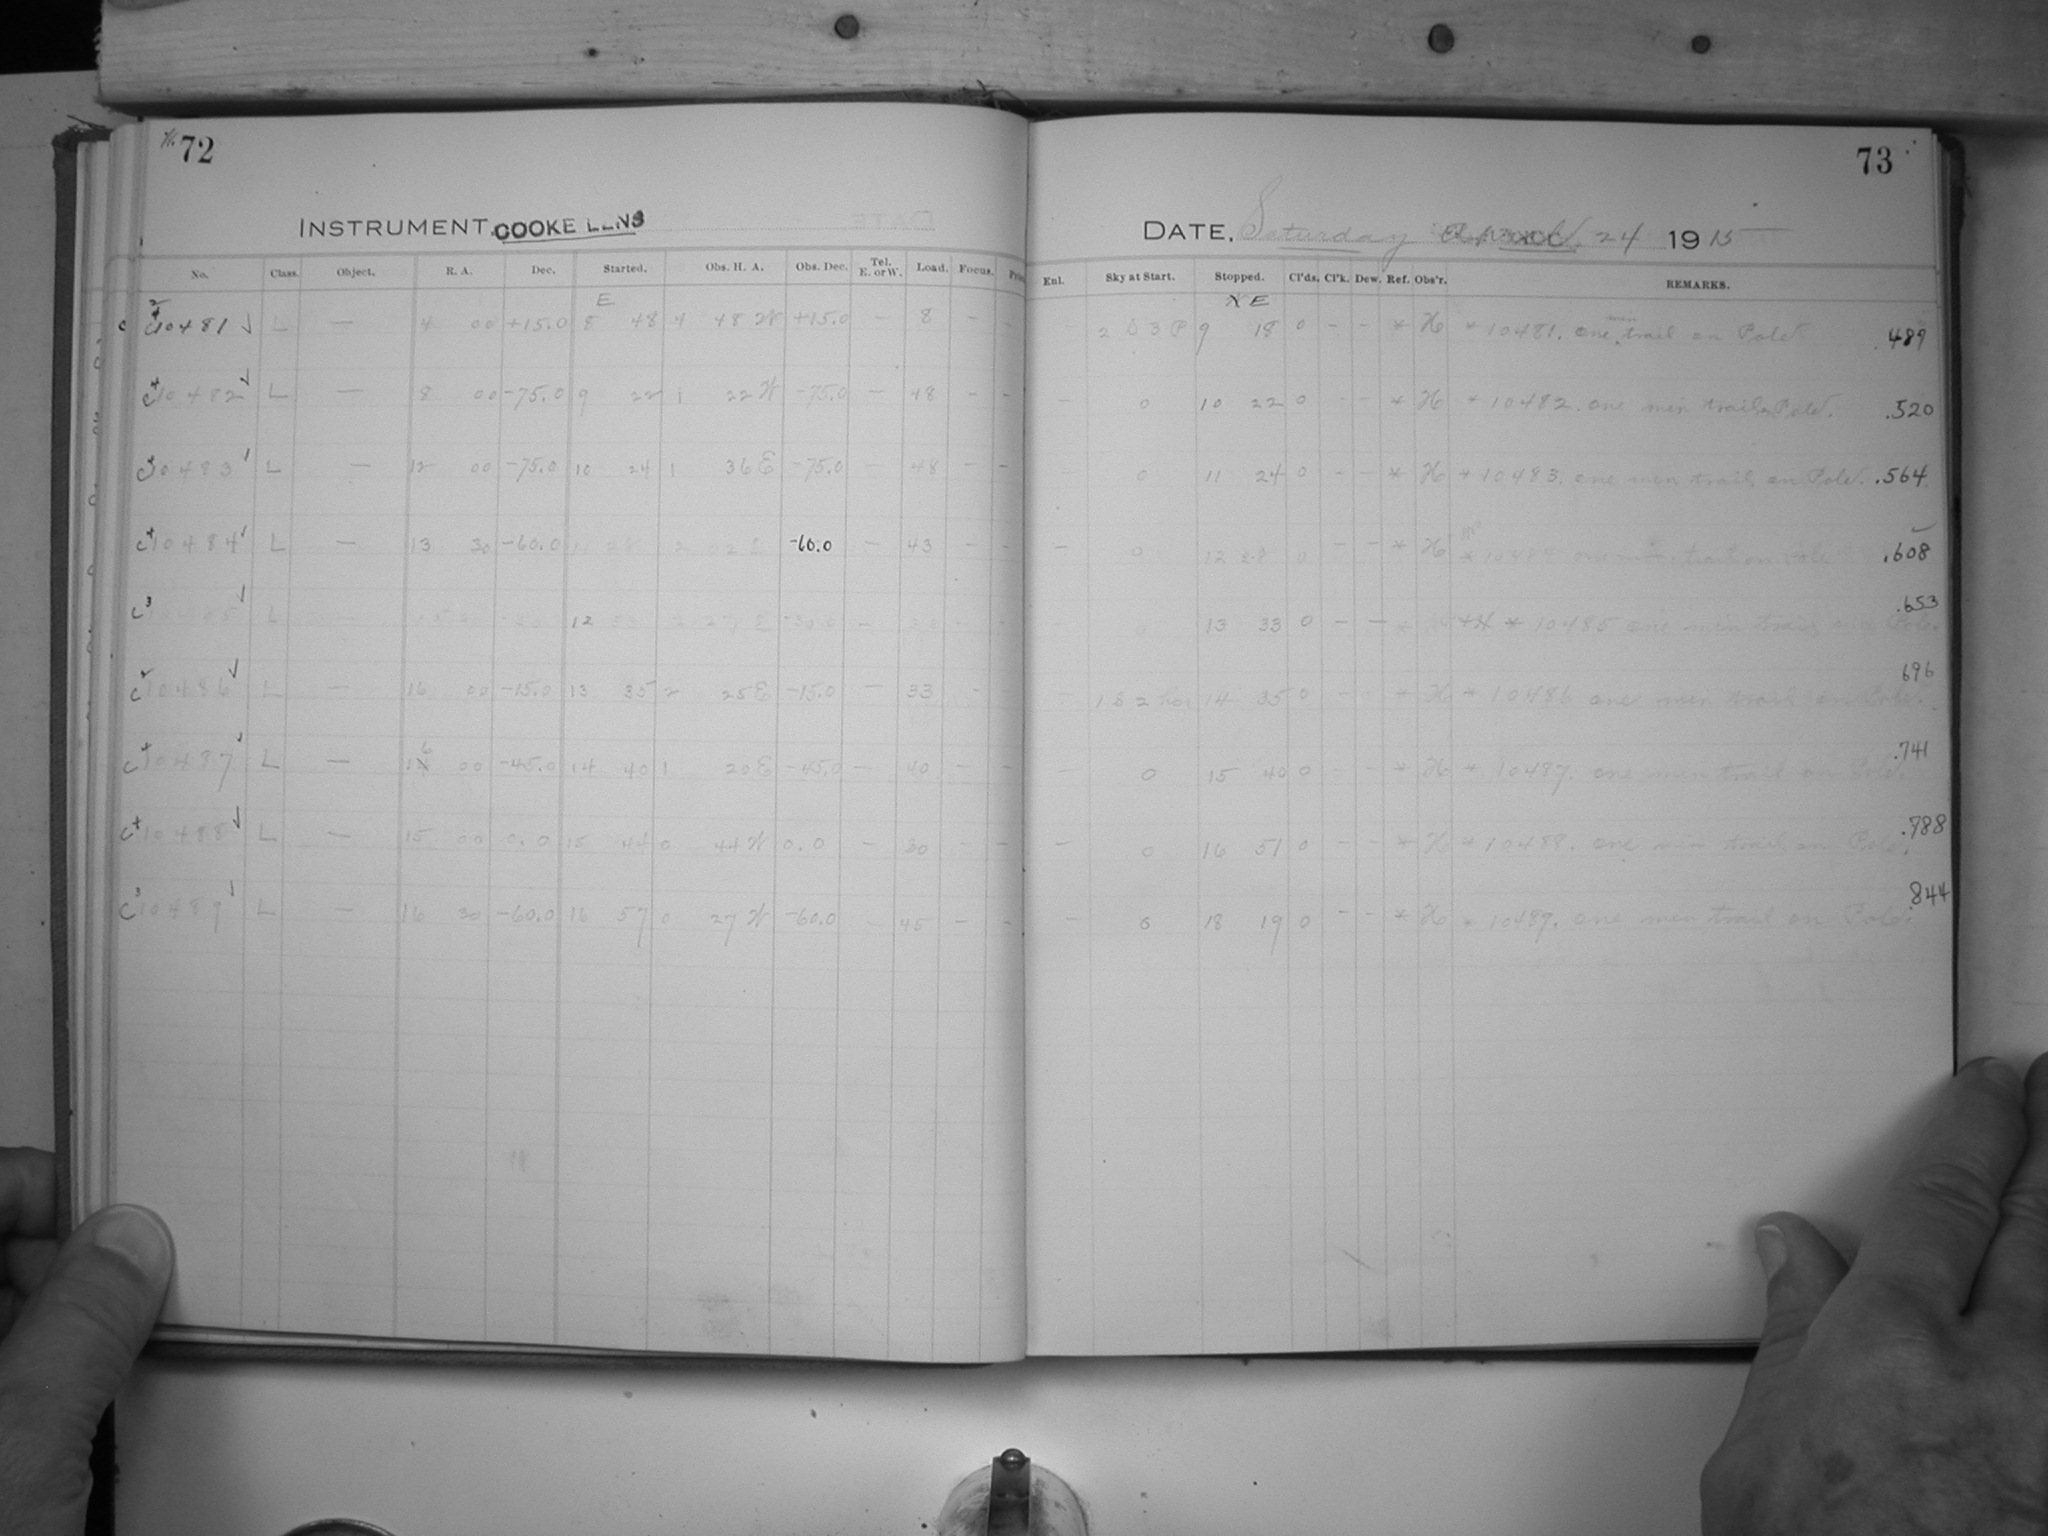 72
INSTRUMENT, COOKE LENS
No. Class. Object. R. A. Dec. Started. Obs. H. A. Obs. Dec. Tel. E. or W. Load. Focus.
E
10481 L — 4 00 +15.0 8 48 4 48 W +15.0 — 8 - -
10482 L — 8 00 -75.0 9 22 1 22 W -75.0 — 48 - -
10483 L — 12 00 -75.0 10 24 1 36 E -75.0 — 48 - -
10484 L — 13 30 -60.0 11 28 2 02 E -60.0 — 43
L 12 33 2 27 E
10486 L — 16 00 -15.0 13 35 2 25 E -15.0 — 33
10487 L — 16 00 -45.0 14 40 1 20 E -45.0 — 40 - -
10488 L — 15 00 0.0 15 44 0 44 W 0.0 — 30 - -
10489 L — 16 30 -60.0 16 57 0 27 W -60.0 — 45 - -
73
DATE, Saturday 24 1915
Enl. Sky at Start. Stopped. Cl'ds. Cl'k. Dew. Ref. Obs'r. REMARKS.
E
9 18 0 - - * H * 10481. one min trail on Pole. .489
- 0 10 22 0 - - * H * 10482. one min trail Pole. .520
0 11 24 0 - - * H * 10483. one min trail on Pole. .564
- 0 12 28 0 - - * H * 10484 one min. trail on Pole .608
0 13 33 0 - - * * 10485 one min trail on Pole. .653
14 35 0 - - * H * 10486 one min trail on Pole. 696
- 0 15 40 0 - - * H * 10487. one min trail on Pole. .741
- 0 16 51 0 - - * H * 10488. one min trail on Pole. .788
- 0 18 19 0 - - * H * 10489. one min trail on Pole. .844